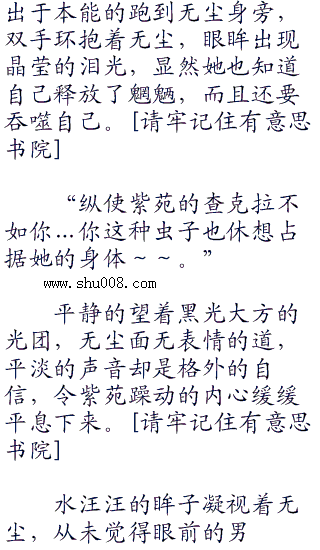 出于本能的跑到无尘身旁，
双手环抱着无尘，眼眸出现
晶莹的泪光，显然她也知道
自己释放了魍魉，而且还要
吞噬自己。[请牢记住有意思
书院]
“纵使紫苑的查克拉不
如你…你这种虫子也休想占
据她的身体～～。”
www.shu008.com
平静的望着黑光大方的
光团，无尘面无表情的道，
平淡的声音却是格外的自
信，令紫苑躁动的内心缓缓
平息下来。[请牢记住有意思
书院]
水汪汪的眸子凝视着无
尘，从未觉得眼前的男